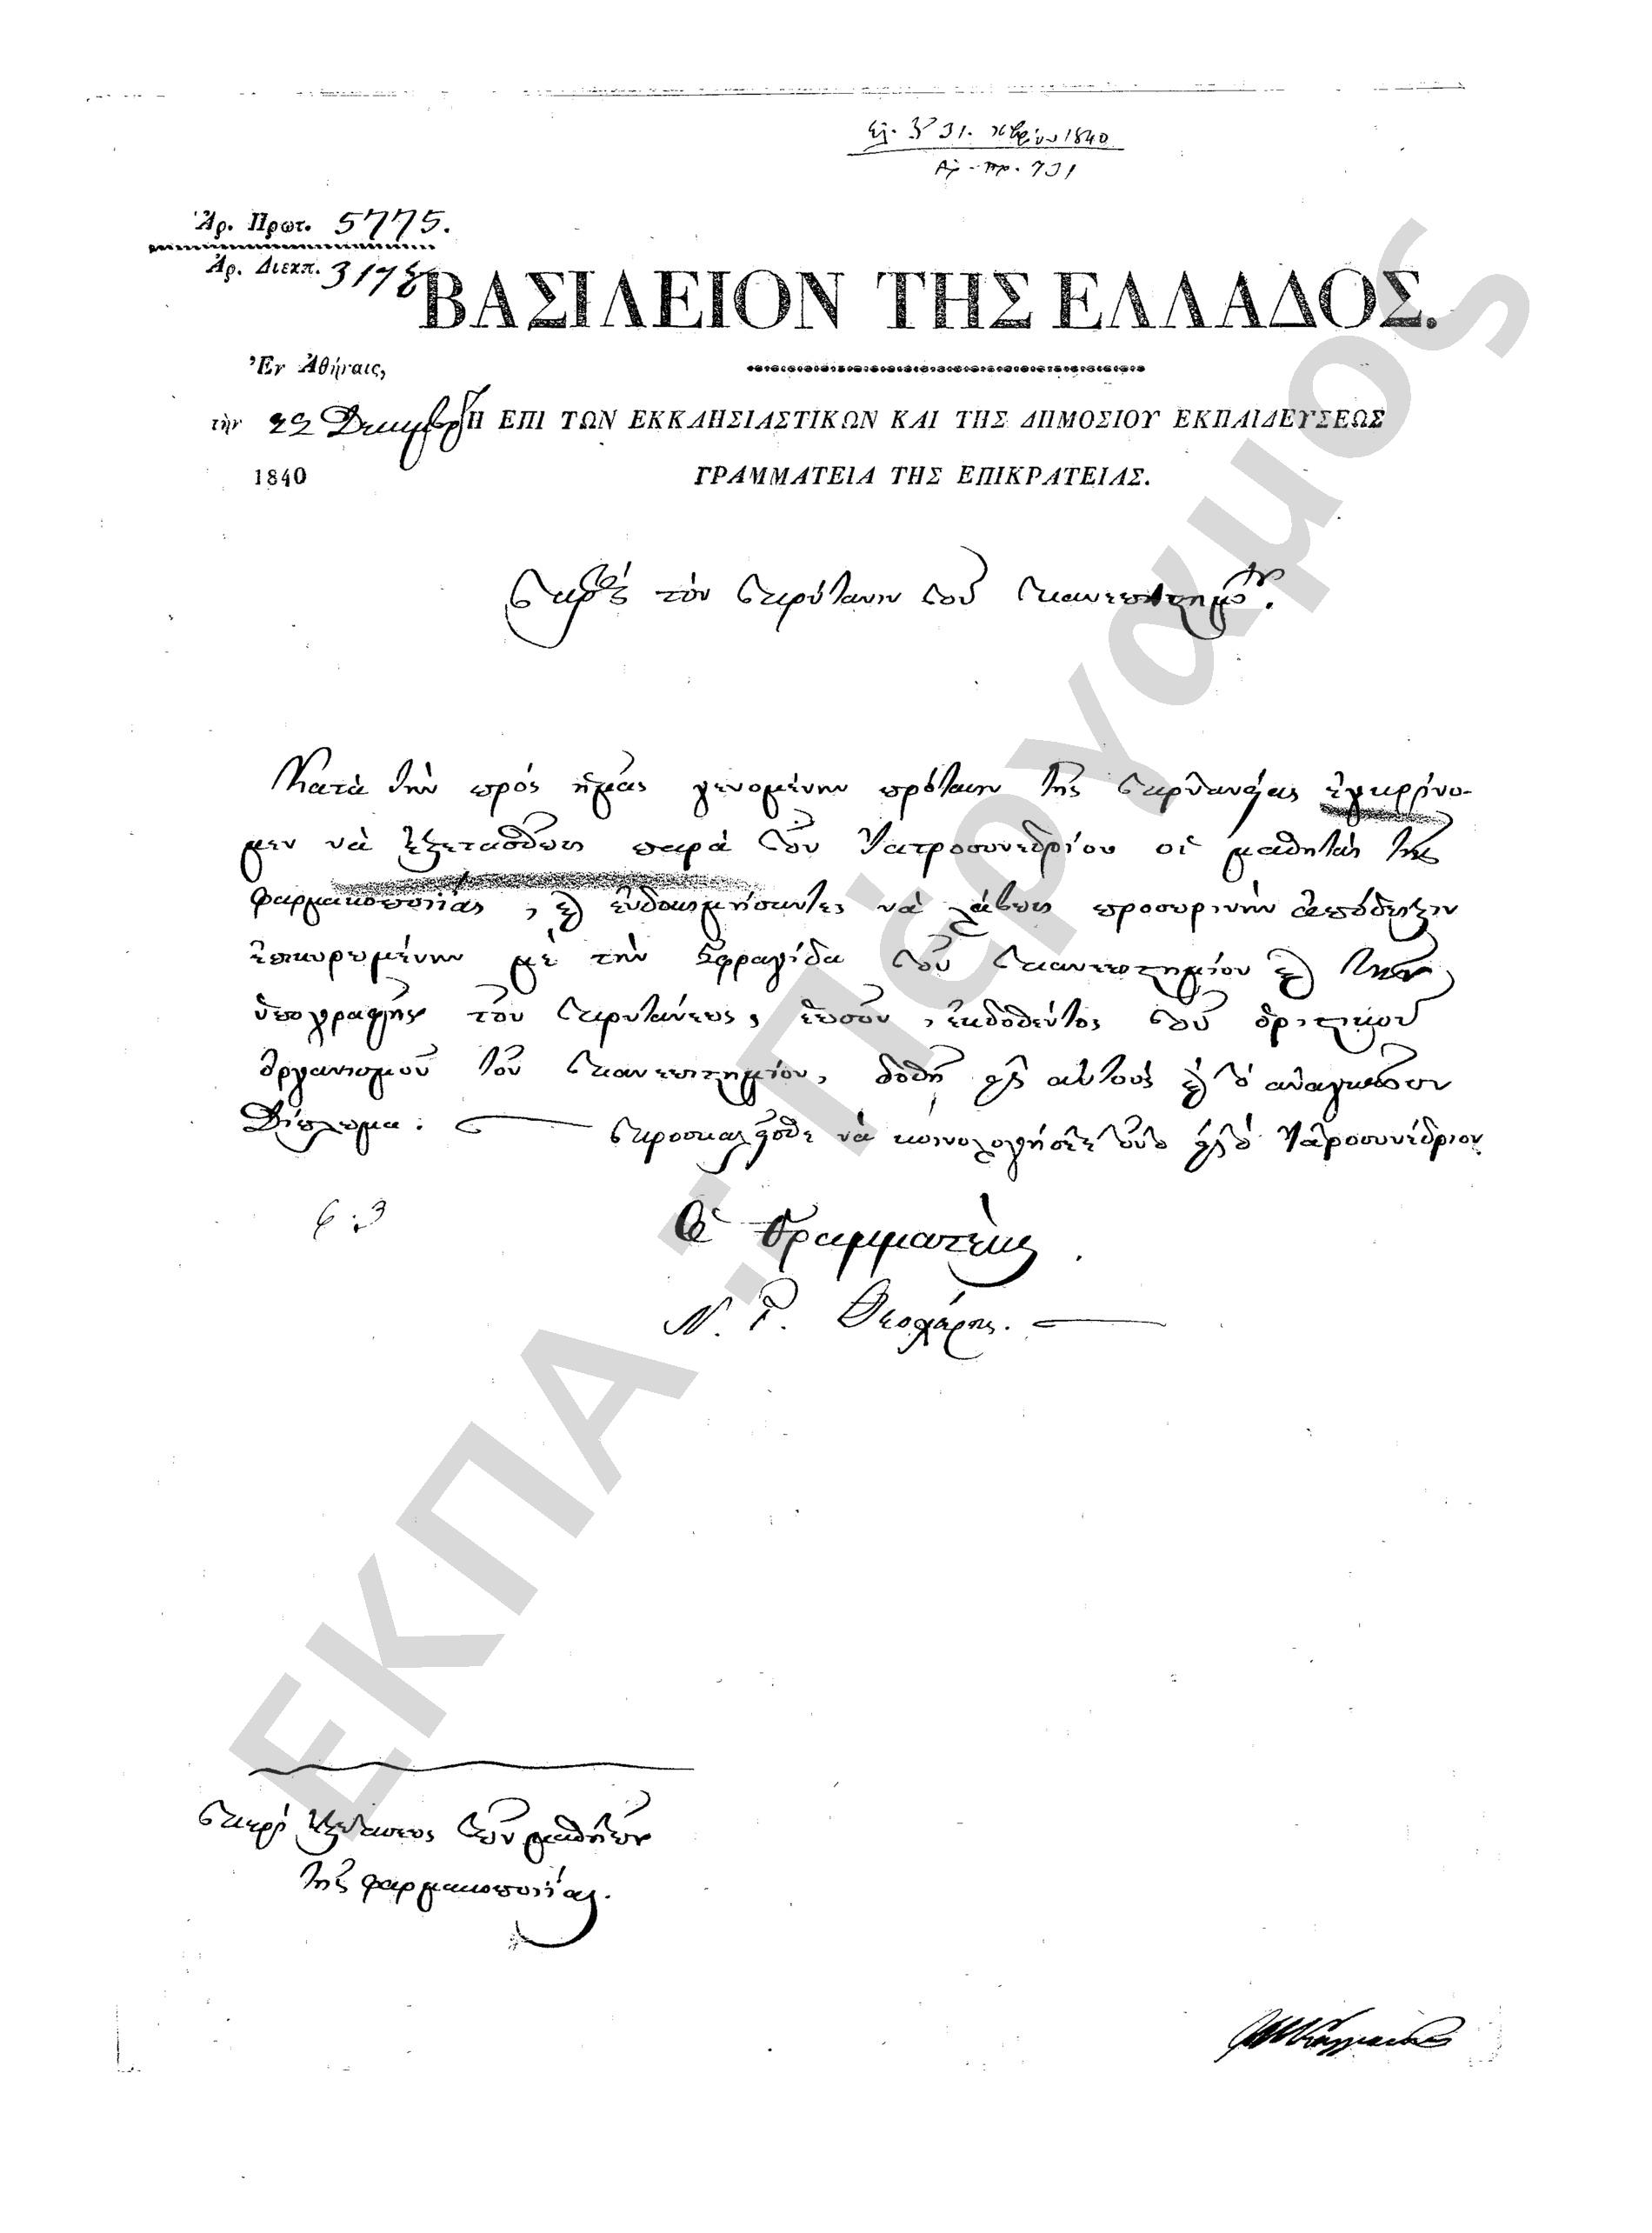 Ἀρ. Πρωτ. 5775.
Ἀρ. Διεκπ. 3178
ΒΑΣΙΛΕΙΟΝ ΤΗΣ ΕΛΛΑΔΟΣ.
Ἐν Ἀθήναις,
τὴν 22 Δεκεμβρ
1840
Η ΕΠΙ ΤΩΝ ΕΚΚΛΗΣΙΑΣΤΙΚΩΝ ΚΑΙ ΤΗΣ ΔΗΜΟΣΙΟΥ ΕΚΠΑΙΔΕΥΣΕΩΣ
ΓΡΑΜΜΑΤΕΙΑ ΤΗΣ ΕΠΙΚΡΑΤΕΙΑΣ.
Πρὸς τὸν Πρύτανιν τοῦ Πανεπιστημίου.
Κατὰ τὴν πρὸς ἡμᾶς γενομένην πρότασιν τῆς Πρυτανείας ἐγκρίνο-
μεν νὰ ἐξετασθῶσι παρὰ τοῦ Ἰατροσυνεδρίου οἱ μαθηταὶ τῆς
φαρμακοποιίας, καὶ εὐδοκιμήσαντες νὰ λάβωσι προσωρινὴν ἀπόδειξιν
ἐπικυρωμένην μὲ τὴν σφραγίδα τοῦ Πανεπιστημίου καὶ τὴν
ὑπογραφὴν τοῦ Πρυτάνεως, ἑωσοῦ, ἐκδοθέντος τοῦ ὁριστικοῦ
ὀργανισμοῦ τοῦ Πανεπιστημίου, δοθῇ εἰς αὐτοὺς καὶ τὸ ἀναγκαῖον
Δίπλωμα. Προσκαλεῖσθε νὰ κοινολογήσετε τοῦτο εἰς τὸ Ἰατροσυνέδριον.
Ὁ Γραμματεὺς
Ν. Γ. Θεοχάρης.
Περὶ ἐξετάσεως τῶν μαθητῶν
τῆς φαρμακοποιίας.
ΕΚΠΑ - Πέργαμος